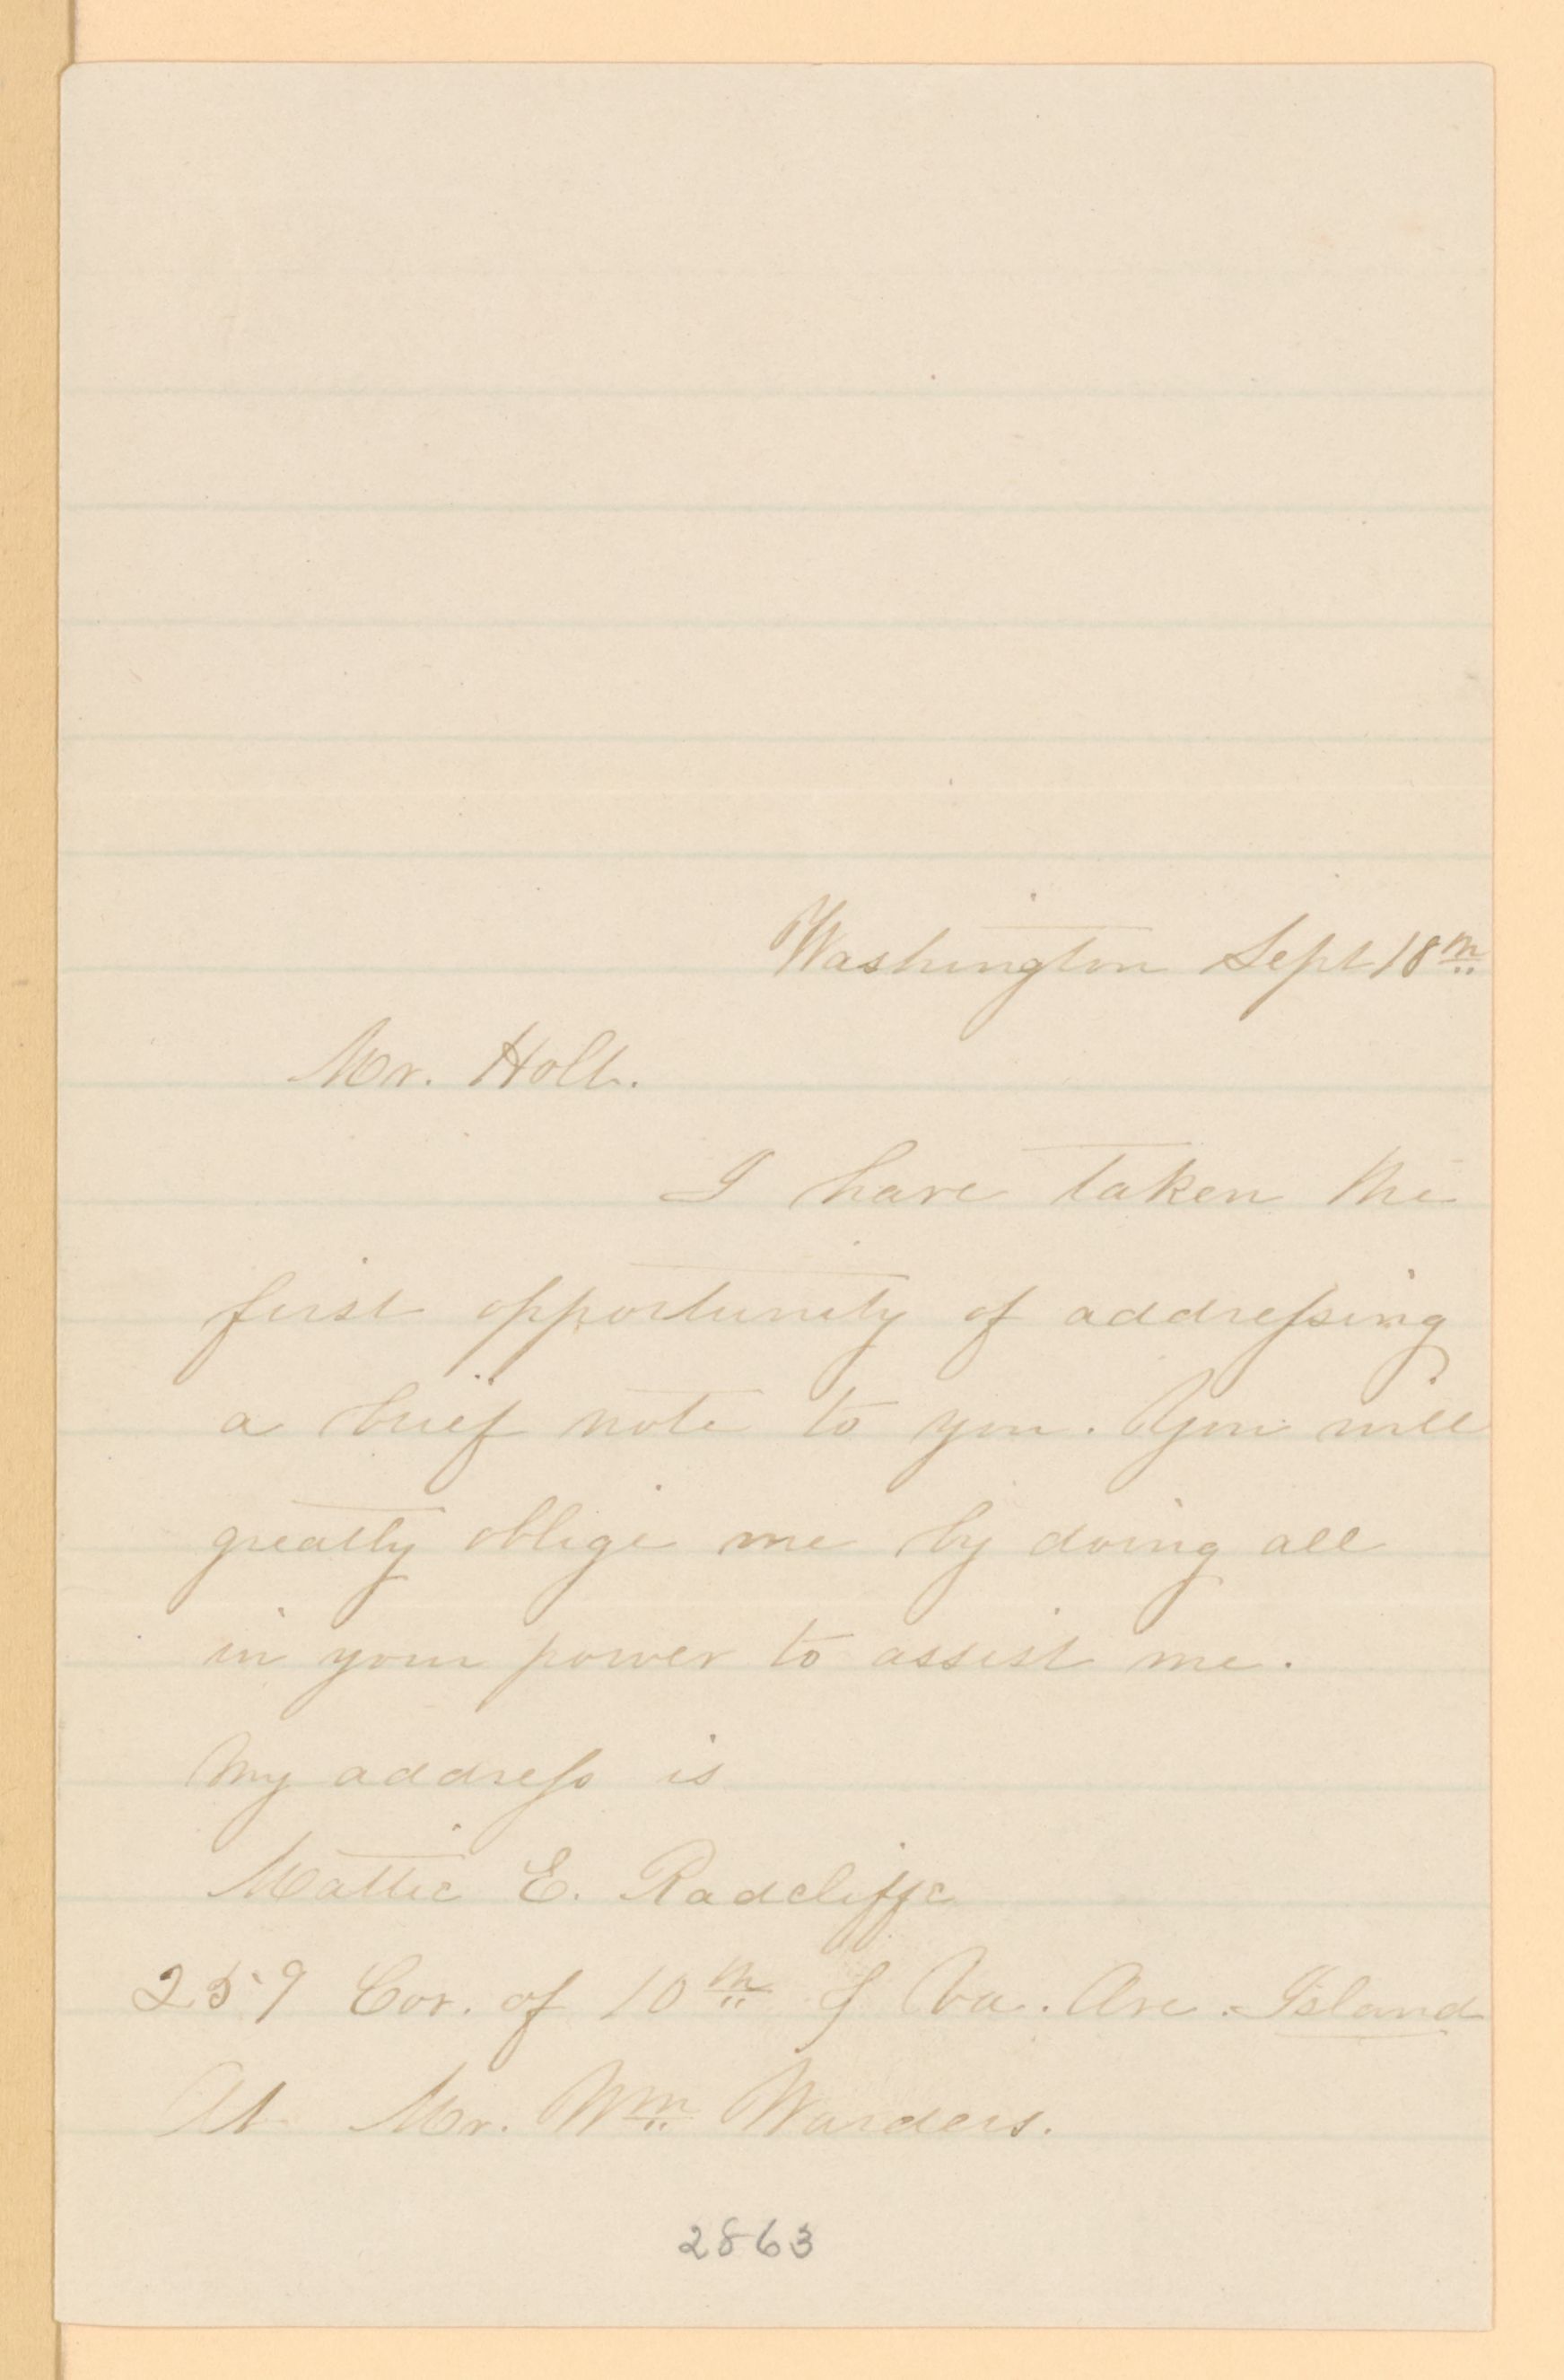 Washington Sept 18th
Mr. Holt.
I have taken the
first opportunity of addressing
a brief note to you. You will
greatly oblige me by doing all
in your power to assist me.
My address is
Mattie E. Radcliffe
259 Cor. of 10th & Va. Ave. Island
At Mr. Wm Warders.
2863